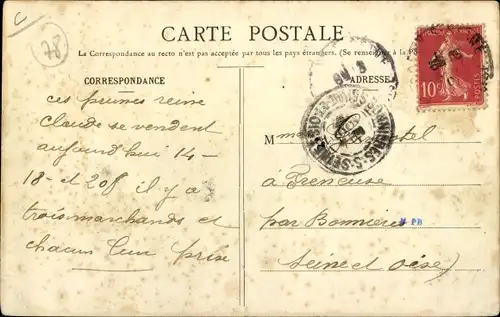 C
78
CARTE POSTALE
La Correspondance au recto n'est pas acceptée par tous les pays étrangers. (Se renseigner à la
CORRESPONDANCE
ADRESSE
ces prunes reine
Claude se vendent
aujourd'hui 14-
18- et 20f il y a
trois marchands et
chacun leur prise
M
a Freneuse
par Bonnieres
PB
Seine et Oise
10
POSTES